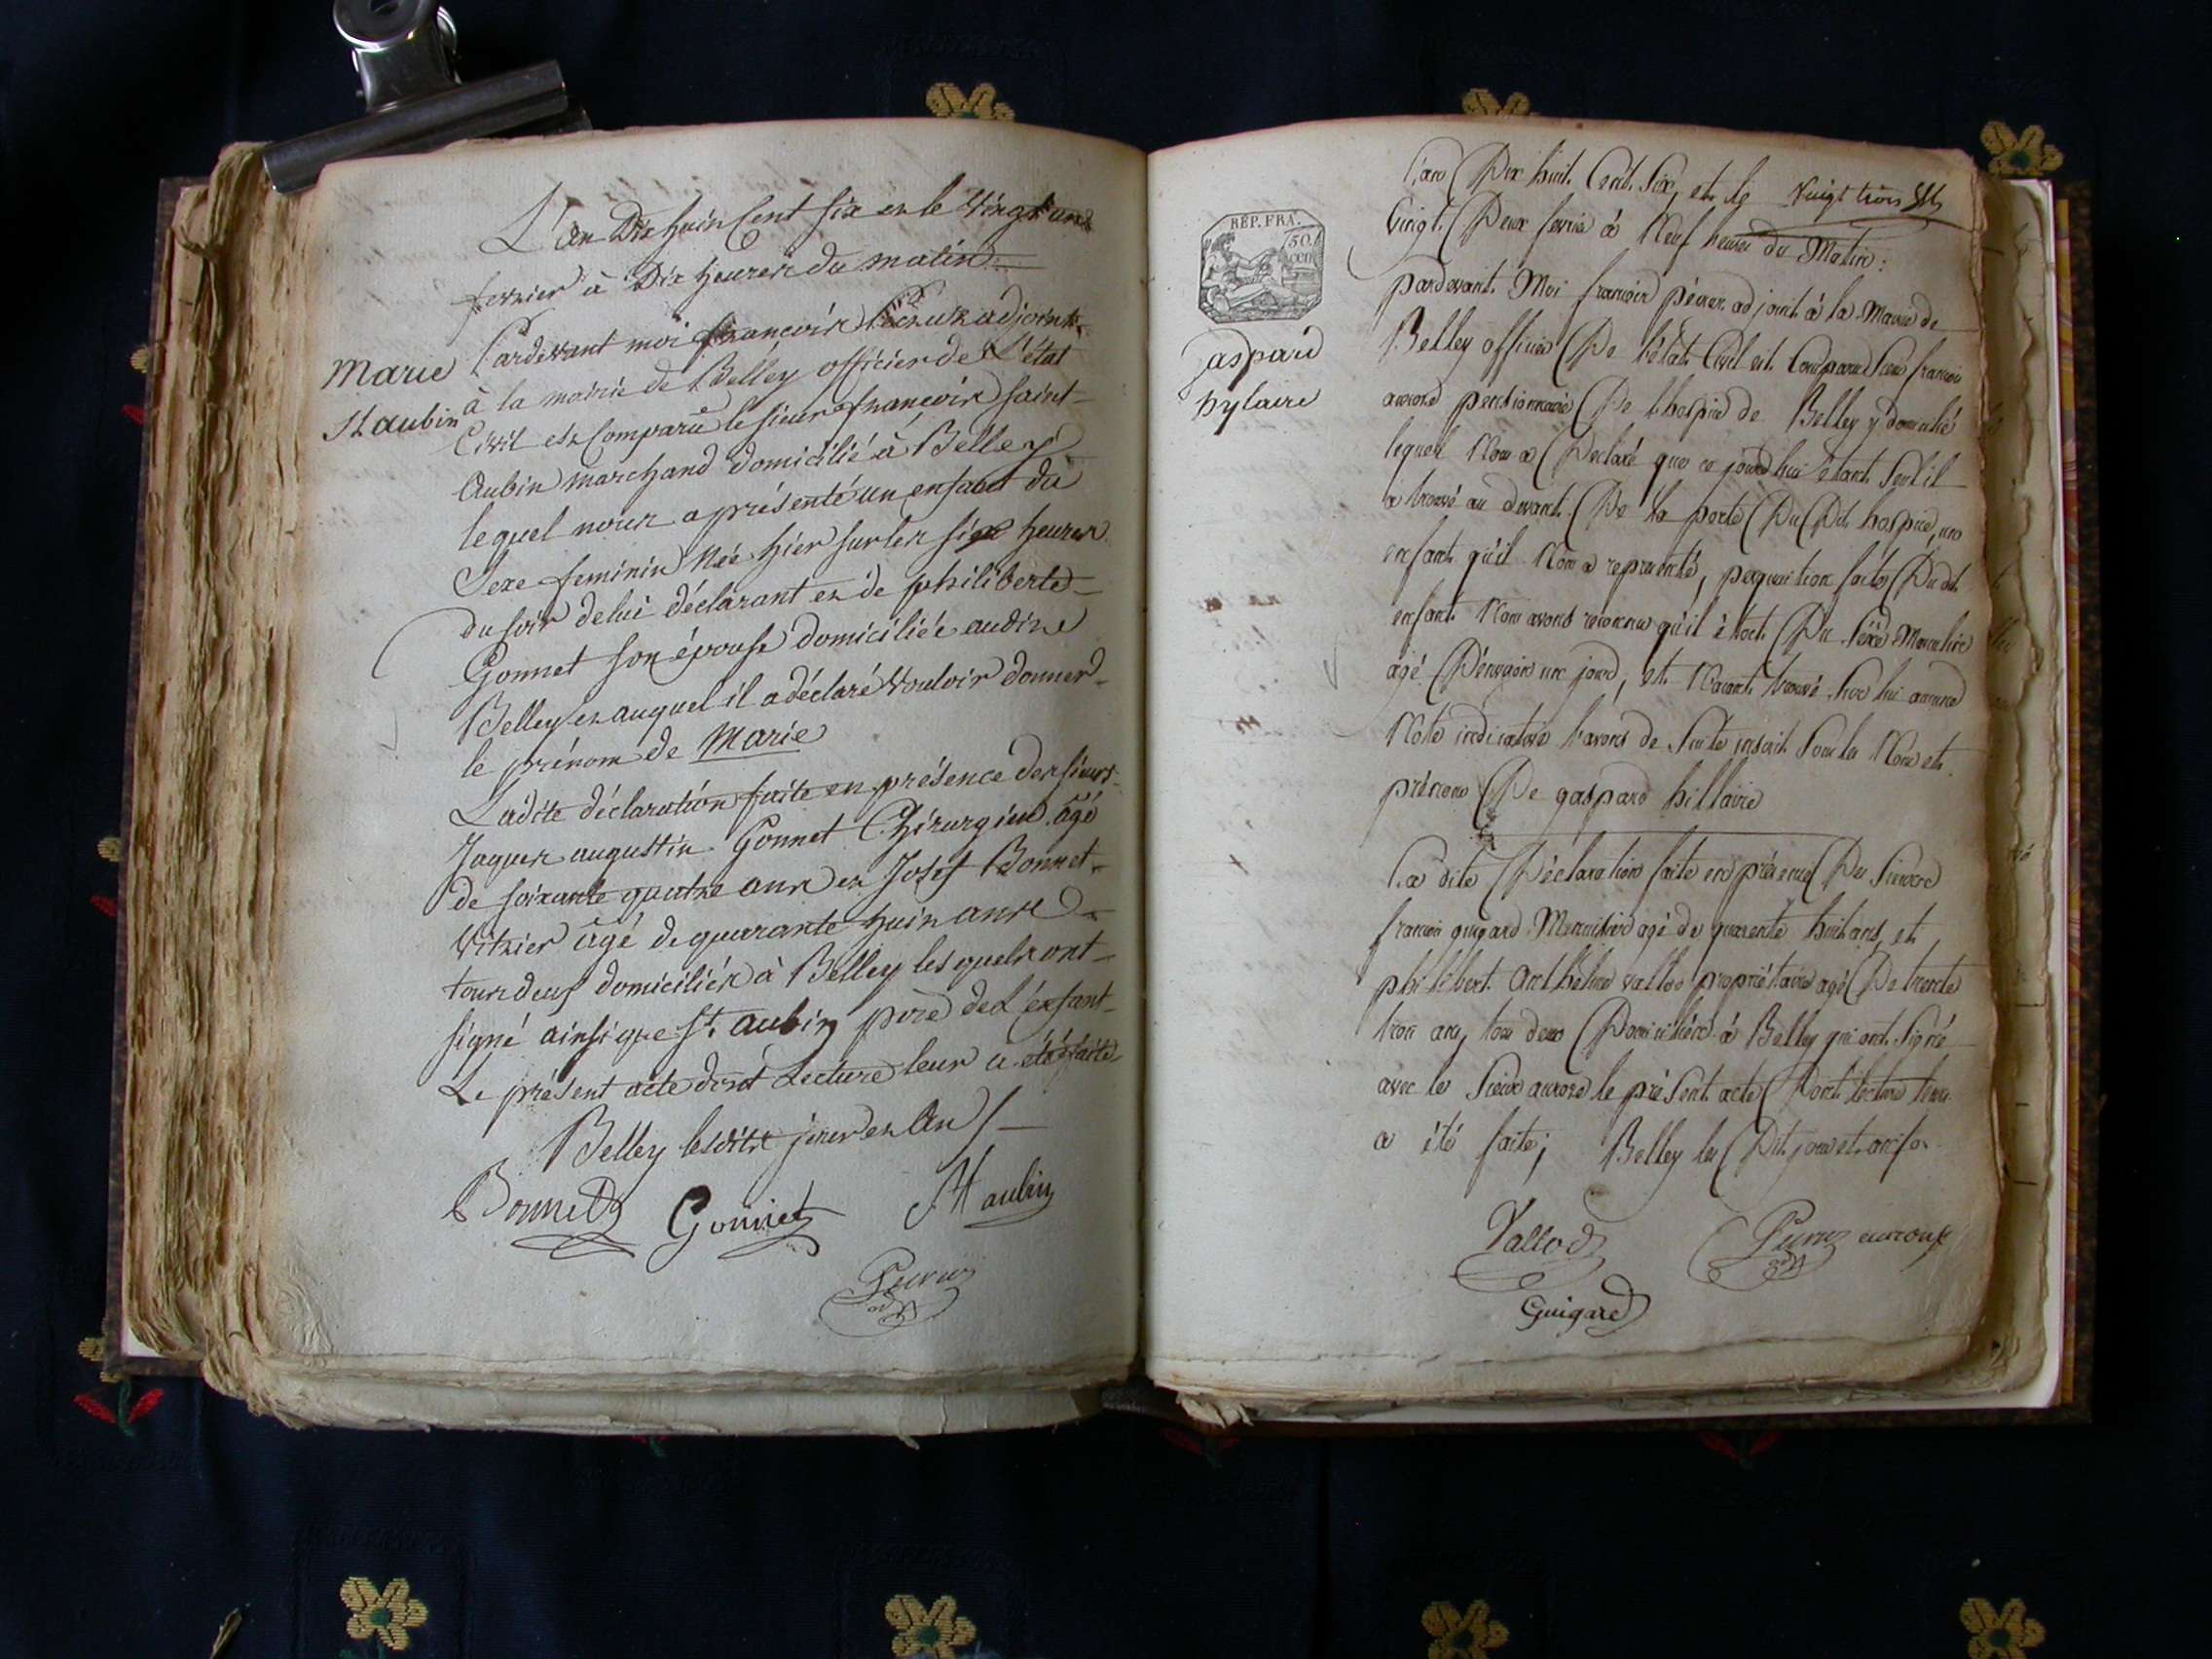 L'an Dix huit Cent six et le Vingt un
fevrier à Dix heures du matin
Pardevant moi françois adjoint
à la mairie de Belley officier de L'état
Civil est Comparû le sieur françois saint
Aubin marchand domicilié à Belley
lequel nous a présenté un enfant du
Sexe feminin Née hier sur les six heures
du soir de lui déclarant et de philiberte
Gonnet son épouse domiciliée audit
Belley et auquel il a déclaré Vouloir donner
le prénom de Marie
Ladite déclaration faite en présence des sieurs
Jaques augustin Gonnet Chirurgien âgé
de soixante quatre ans et Josef Bonnet
Vitrier âgé de quarante huit ans
tous deux domiciliés à Belley les quels ont
signé ainsi que St. aubin père de L'enfant
Le présent acte dont Lecture leur a été faite
Belley lesdits jour et An
Marie
St aubin
Bonnet Gonnet St aubin
REP. FRA.
50.
L'an Dix huit Cent Six, et le Vingt trois
Vingt Deux fevrier à Neuf heures du Matin:
pardevant Moi françois adjoint à la Mairie de
Belley officier De l'état Civil est Comparu Sieur françois
pensionnaire De l'hospice de Belley y domicilié
lequel Nous a Declaré que ce jourd'hui étant Seul il
a trouvé au devant De la porte Du Dit hospice, un
enfant qu'il Nous a représenté, perquisition faite Du dit
enfant Nous avons reconnu qu'il étoit Du Sexe Masculin
agé D'environ un jour, et N'ayant trouvé Sur lui aucune
Note indicative l'avons de Suite inscrit Sous les Nom et
prénom De gaspard hillaire
La dite Déclaration faite en présence Du Sieurs
françois guigard Menuisier agé de quarente huit ans, et
philibert Anthelme vallod propriétaire agé De trente
trois ans, tous deux Domiciliés à Belley qui ont Signé
avec le Sieur le présent acte Dont lecture leur
a été faite; Belley les Dit jour et an
gaspard
hylaire
Vallod
Guigard